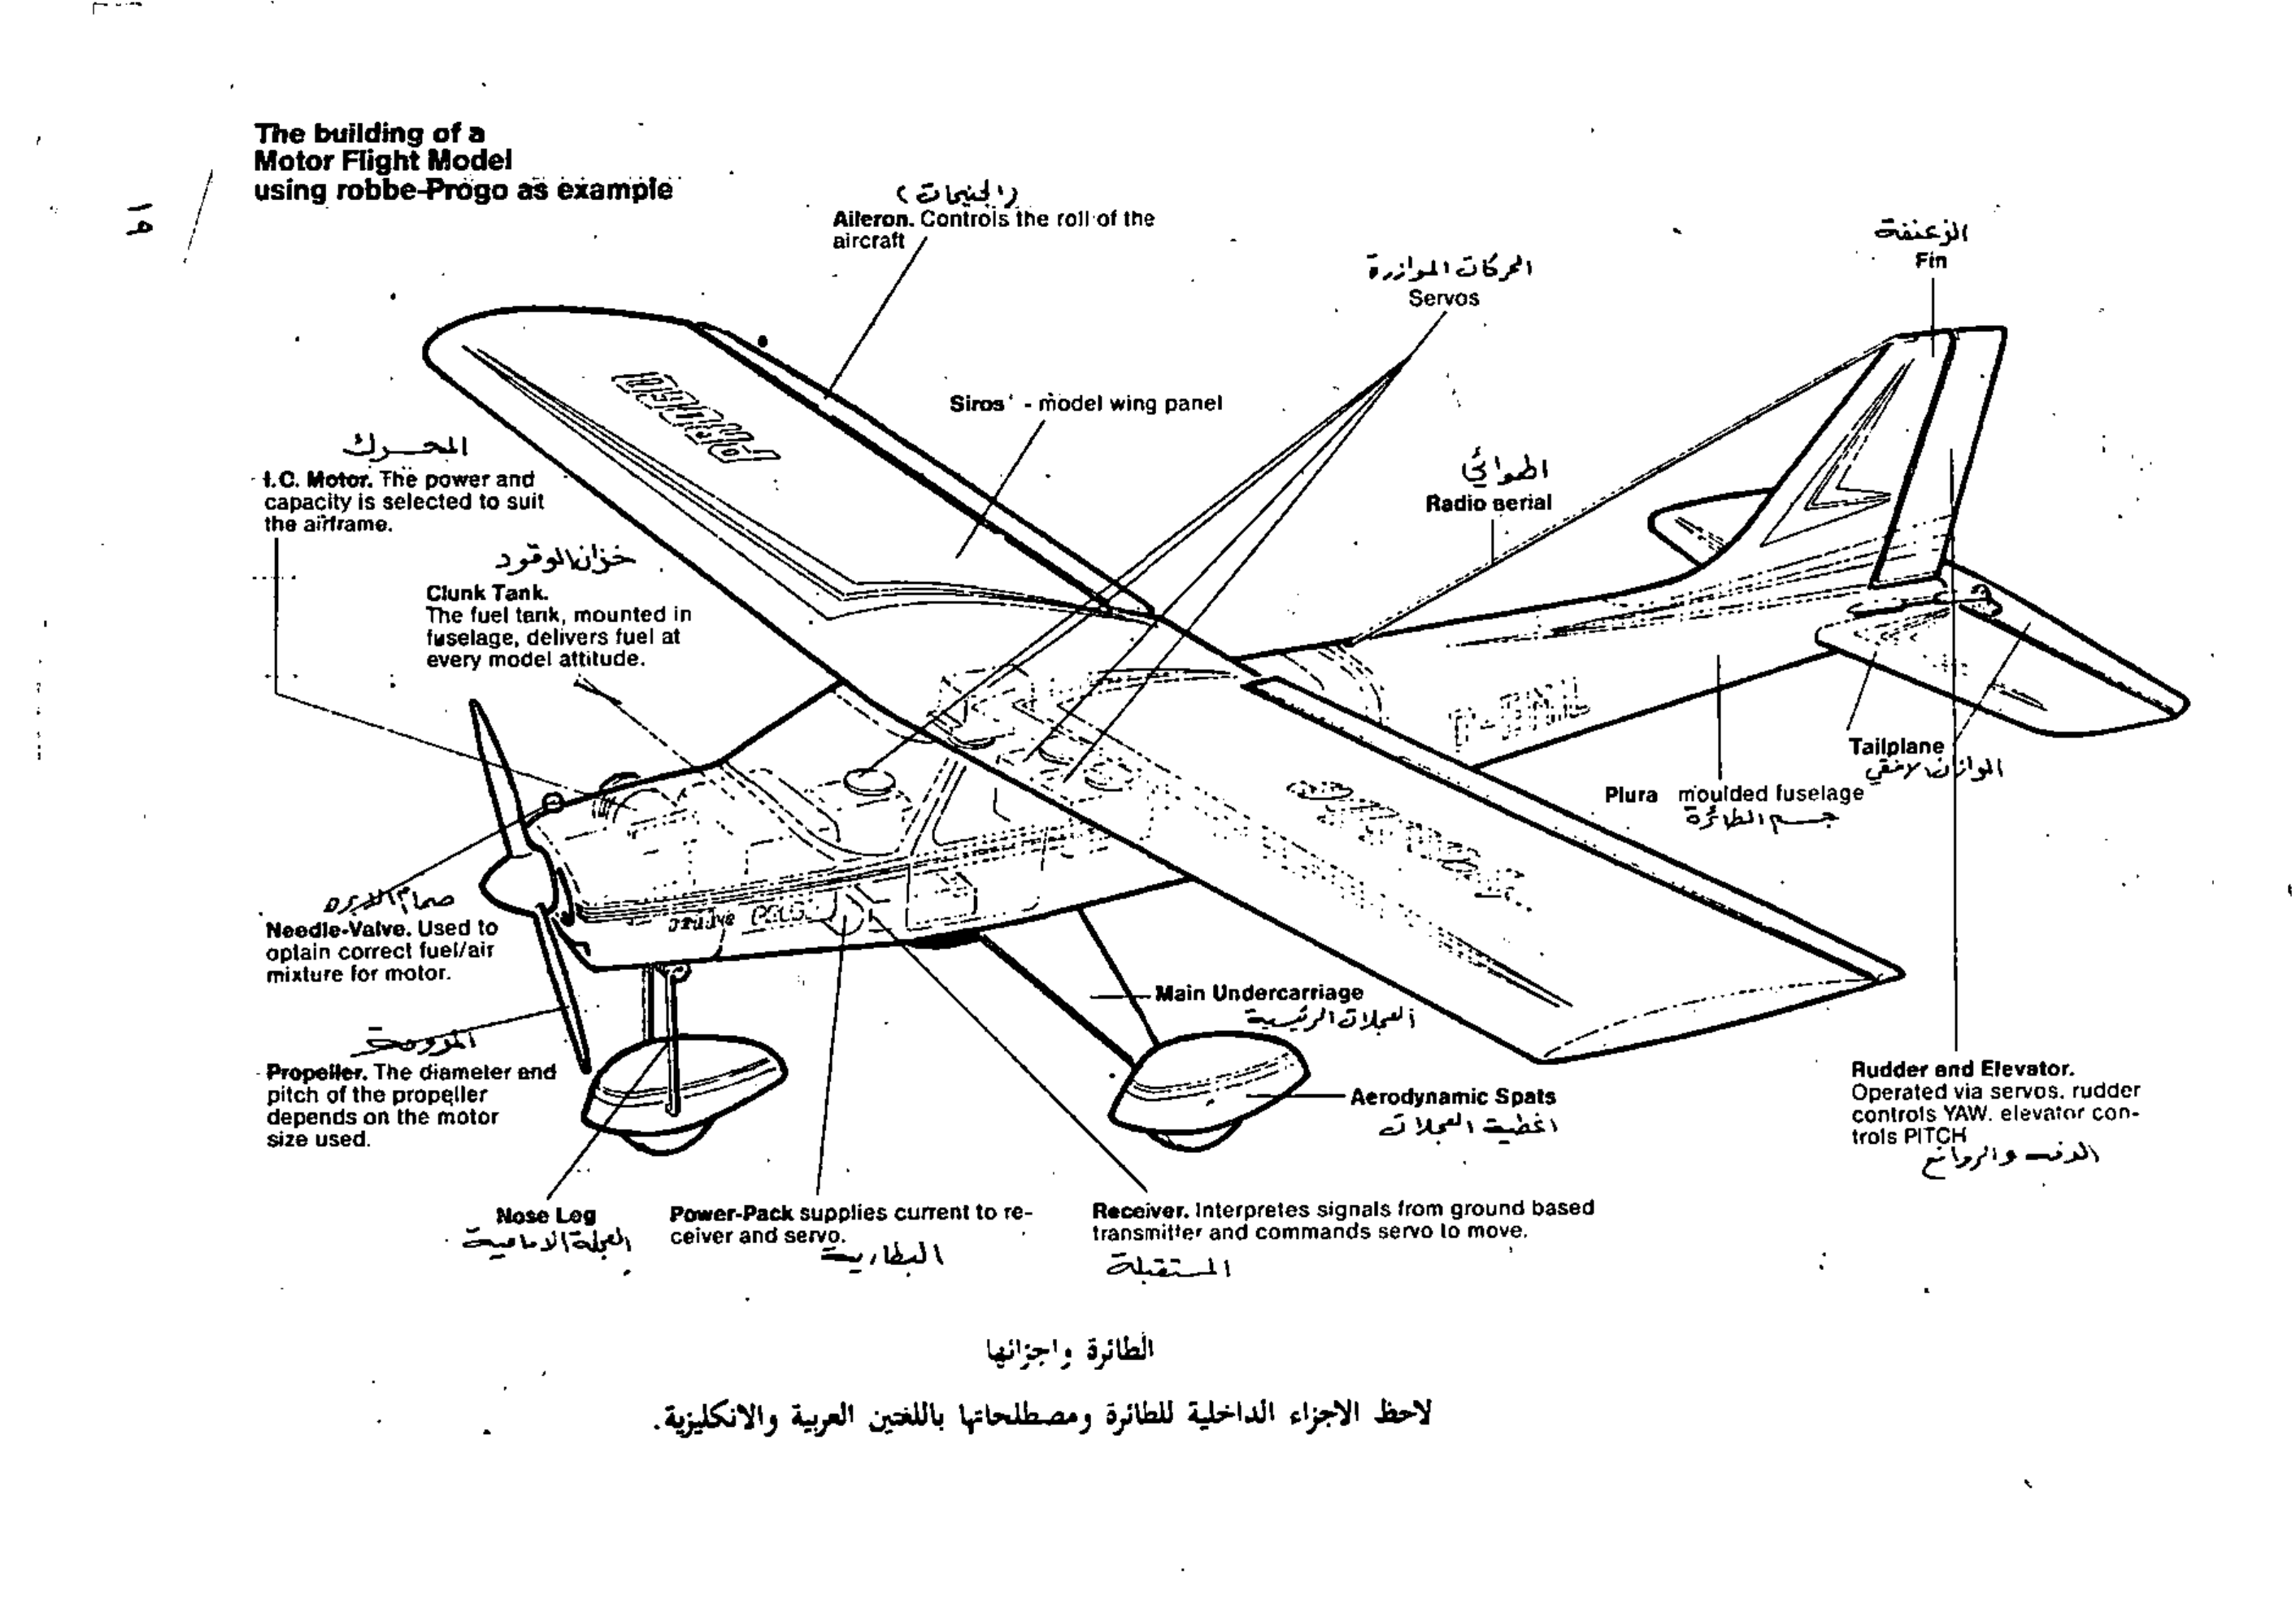 The building of a
Motor Flight Model
using robbe-Progo as example
١٩
(الجنيحات)
Aileron. Controls the roll of the
aircraft
الزعنفة
Fin
المحركات الموازرة
Servos
Siros - model wing panel
المحـــرك
I.C. Motor. The power and
capacity is selected to suit
the airframe.
الهوائي
Radio aerial
خزان الوقود
Clunk Tank.
The fuel tank, mounted in
fuselage, delivers fuel at
every model attitude.
Tailplane
الموازن الافقي
Plura moulded fuselage
جسم الطائرة
صمام الابره
Needle-Valve. Used to
optain correct fuel/air
mixture for motor.
Main Undercarriage
العجلات الرئيسية
المروحة
Propeller. The diameter and
pitch of the propeller
depends on the motor
size used.
Aerodynamic Spats
اغطية العجلات
Rudder and Elevator.
Operated via servos. rudder
controls YAW. elevator con-
trols PITCH
الدفة والروافع
Nose Leg
العجلة الامامية
Power-Pack supplies current to re-
ceiver and servo.
البطارية
Receiver. Interpretes signals from ground based
transmitter and commands servo to move.
المستقبلة
الطائرة واجزائها
لاحظ الاجزاء الداخلية للطائرة ومصطلحاتها باللغتين العربية والانكليزية.